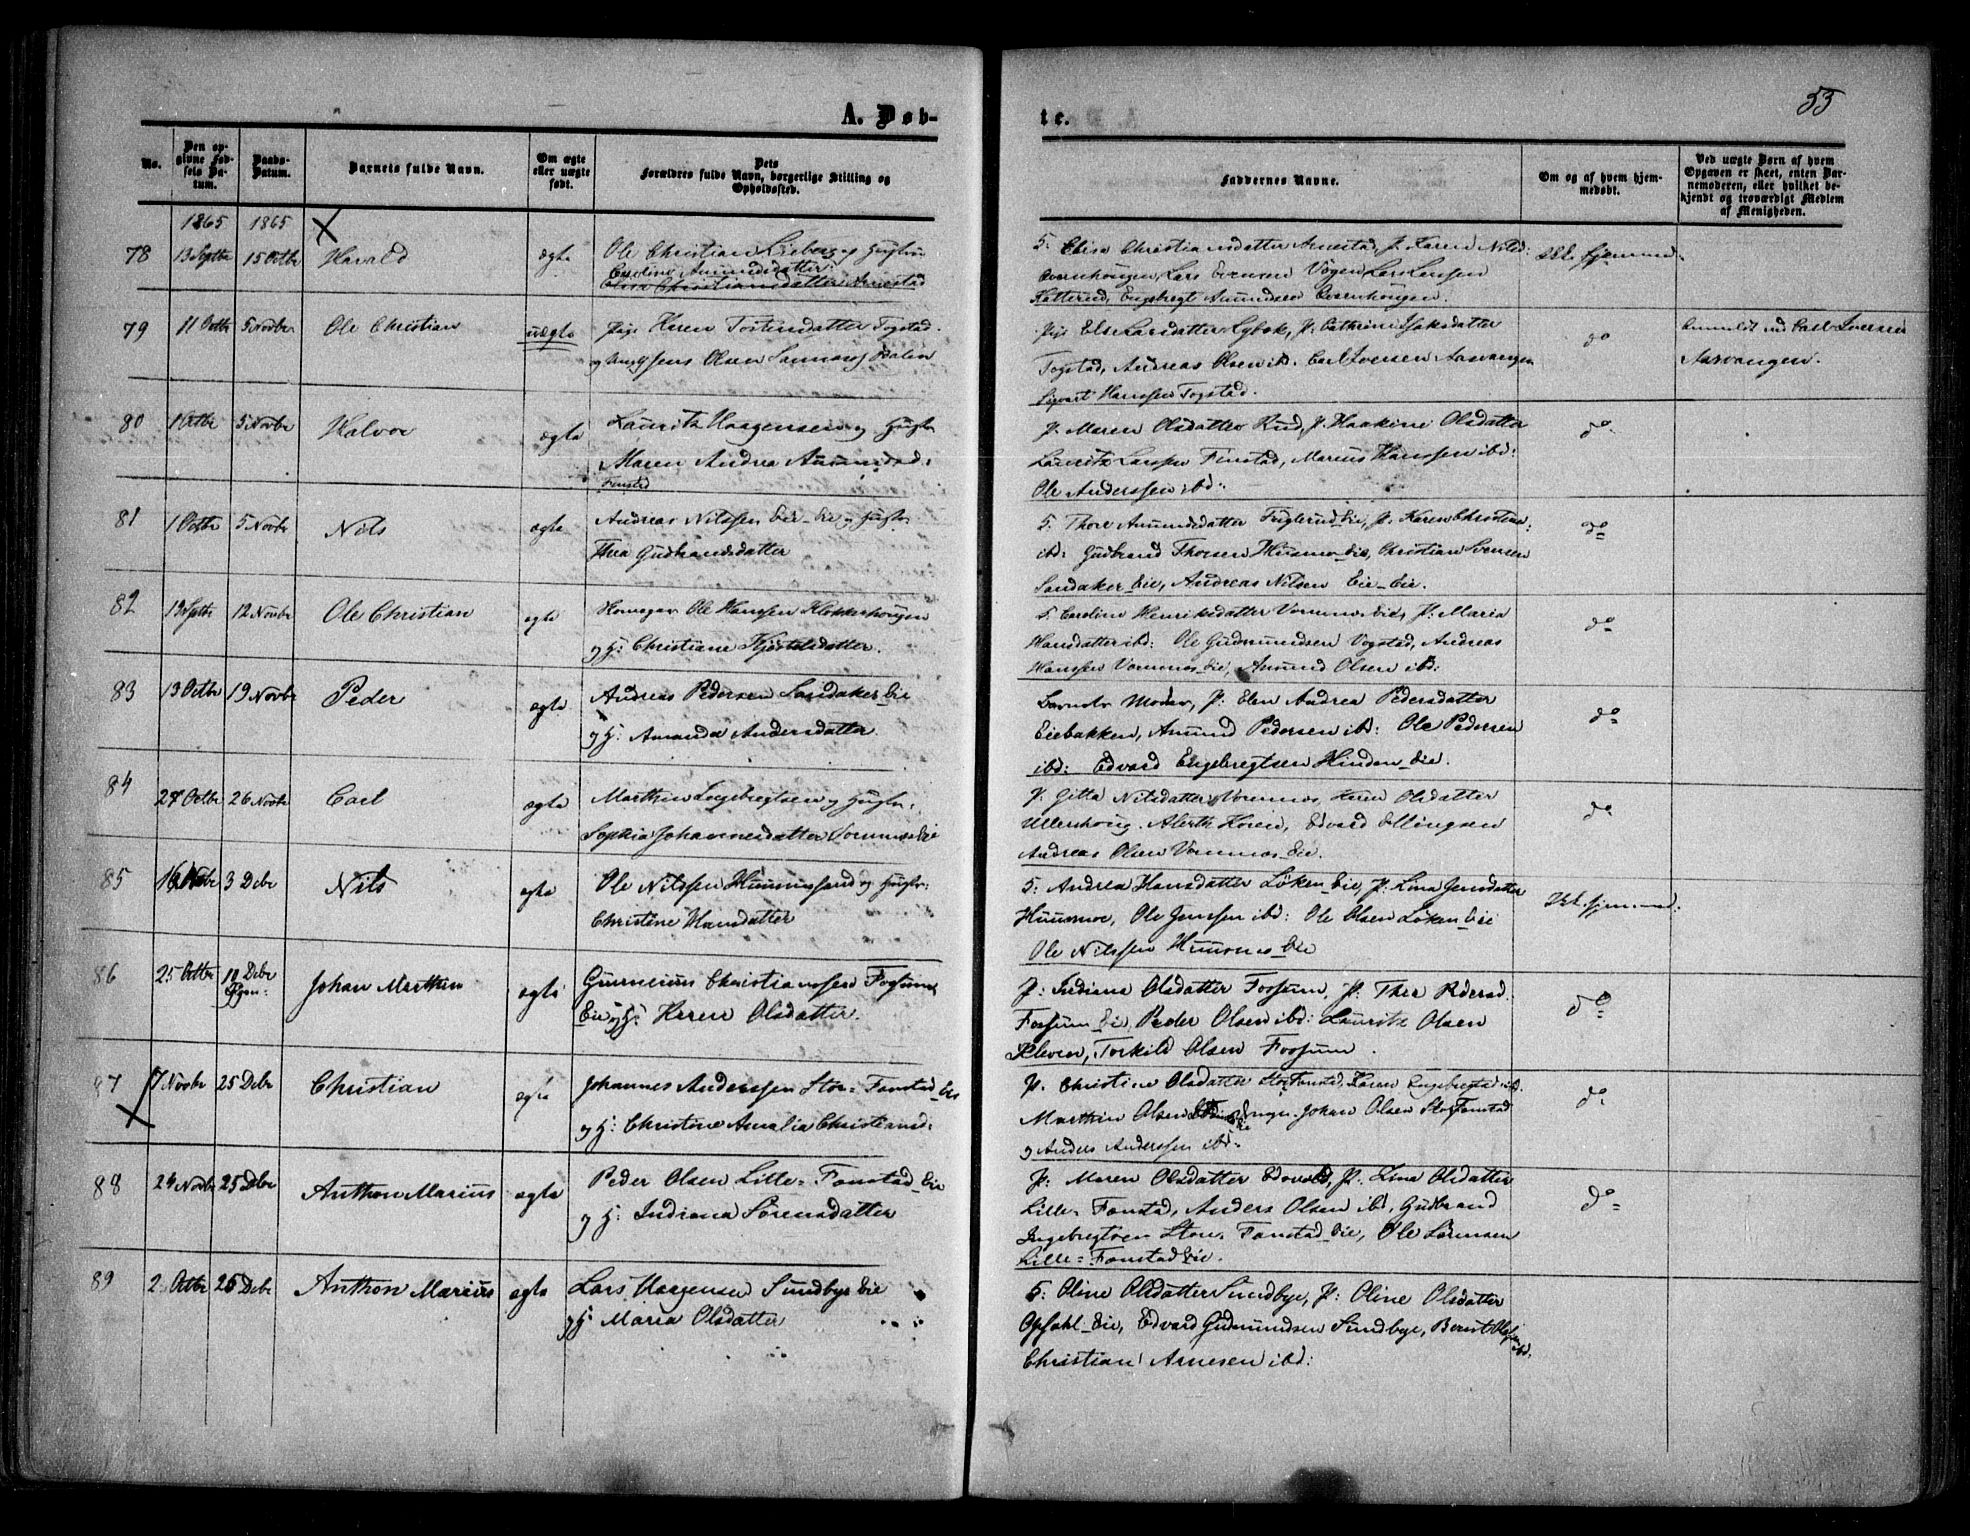 53
A. Døb-
te.
No.
Den op-
givne Fød-
sels Da-
tum.
Daabs-
Datum.
Barnets fulde Navn.
Om ægte
eller uægte
født.
Dets
Forældres fulde Navn, borgerlige Stilling og
Opholdssted.
Faddernes Navne.
Om og af hvem hjem-
medøbt.
Ved uægte Børn af hvem
Opgaven er skeet, enten Bar-
nemoderen, eller hvilket be-
kjendt og troværdigt Medlem
af Menigheden.
1865 1865
78 13 Septbr 15 Octbr Harald ægte
Ole Christian Lieberg og Hustru
Caroline Amundsdatter
Elisa Christiansdatter Arnestad
S: Elisa Christiansdatter Arnestad, P. Karen Nilsd:
Evenhougen, Lars Evensen Vogen Lars Larsen
Katterud, Engebregt Amundsen Evenhougen.
Ikke hjemmed.
79 11 Octbr 5 Novbr Ole Christian uægte
Pige Karen Tostensdatter Togstad
og Ung Jens Olsen Dalen
Pige Else Larsdatter P: Cathrine Isaksdatter
Togstad, Andreas Olsen ibd. Carl Iversen Aasvangen
Sigvart Hanssen Togstad.
do
Anmeldt ved Carl Iversen
Aasvangen.
80 1 Octbr 5 Novbr Halvor ægte
Lauritz Haagensen og Hustr
Maren Andrea Amundsd:
Finstad
P. Maren Olsdatter Rud, P. Haakine Olsdatter
Lauritz Larssen Finstad, Marius Hanssen ibd:
Ole Anderssen ibd:
do
81 1 Octbr 5 Novbr Nils ægte
Andreas Nilssen Eie-Eie og Hustr.
Thea Gudbrandsdatter
S. Thore Amundsdatter Fuglerud Eie, P. Karen Christine
ibd: Gudbrand Thorsen Husmo Eie, Christian Svensen
Sandaker Eie, Andreas Nilsen Eie-Eie.
do
82 13 Septbr 12 Novbr Ole Christian ægte
Ole Hanssen Klokkerhougen
og H: Christiane Kjostelsdatter.
S. Caroline Henriksdatter Vormnæs Eie, P. Maria
Hansdatter ibd: Ole Gudmundsen Vogstad, Andreas
Hanssen Vormnæs Eie, Amund Olsen ibd:
do
83 13 Octbr 19 Novbr Peder ægte
Andreas Pedersen Sandaker Eie
og H: Amanda Andersdatter
Barnets Moder, P: Elen Andrea Pedersdatter
Eiebakken, Amund Pedersen ibd: Ole Pedersen
ibd: Edvard Engebregtsen Hinden Eie.
do
84 27 Octbr 26 Novbr Carl ægte
Marthin Engebregtsen og Hustr.
Sophia Johannesdatter Vormnæs Eie
P. Gitta Nilsdatter Vormnæs, Karen Olsdatter
Ullershoug. Alerth Horen, Edvard Ellingsen
Andreas Olsen Vormnæs Eie.
do
85 Novbr 3 Debr Nils ægte
Ole Nilssen og Hustr:
Christine Hansdatter
S: Andrea Hansdatter Løken Eie, P. Lina Jensdatter
Huusmoe, Ole Jenssen ibd: Ole Olsen Løken Eie
Ole Nilssen Eie
Ikke hjemmed:
86 25 Octbr 10 Debr Johan Marthin ægte
Gunnerius Christianssen Fossum
Eie og H: Karen Olsdatter.
P: Indiana Olsdatter Fossum, P. Thea Pedersd.
Fossum Eie, Peder Olsen ibd: Lauritz Olsen
Kleven, Torkild Olsen Fossum.
do
87 7 Novbr 25 Debr Christian ægte
Johannes Anderssen Stor-Fonstad Eie
og H: Christine Amalia Christiansd:
P. Christine Olsdatter Stor Fonstad, Karen Engebregtsd ibd.
Marthin Olsen Johan Olsen Stor Fonstad
og Anders Anderssen ibd:
do
88 24 Novbr 25 Debr Anthon Marius ægte
Peder Olsen Lille-Fonstad Eie
og H: Indiana Sørensdatter
P: Maren Olsdatter Edvold, P. Lina Olsdatter
Lille-Fonstad, Anders Olsen ibd, Gudbrand
Ingebregtsen Stor-Fonstad Eie, Ole Sørensen
Lille-Fonstad Eie.
do
89 2 Octbr 26 Debr Anthon Marius ægte
Lars Haagensen Sundbye Eie
og H: Maria Olsdatter
S: Oline Olsdatter Sundbye, P: Oline Olsdatter
Opsahl Eie, Edvard Gudmundsen Sundbye, Bernt Olsen ibd.
Christian Arnesen ibd: